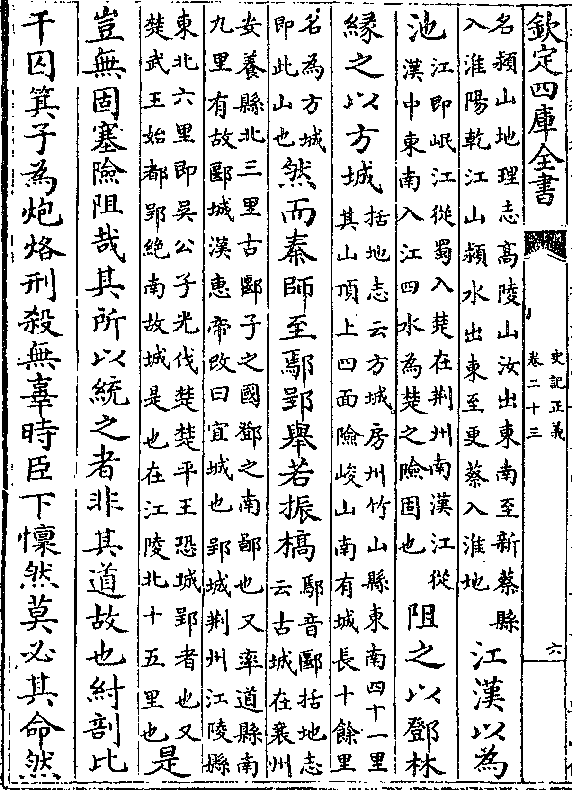 欽定四庫全書
史記正義
卷二十三
六
名潁山地理志高陵山汝出東南至新蔡縣
入淮陽乾江山潁水出東至更蔡入淮地
江漢以為
池
江即岷江從蜀入楚在荆州南漢江從
漢中東南入江四水為楚之險固也
阻之以鄧林
緣之以方城
括地志云方城房州竹山縣東南四十一里
其山頂上四面險峻山南有城長十餘里
名為方城
即此山也
然而秦師至鄢郢舉若振槁
鄢音郾括地志
云古城在襄州
安養縣北三里古郾子之國鄧之南鄙也又率道縣南
九里有故郾城漢惠帝改曰宜城也郢城荆州江陵縣
東北六里即吳公子光伐楚楚平王恐城郢者也又
楚武王始都郢絶南故城是也在江陵北十五里也
是
豈無固塞險阻哉其所以統之者非其道故也紂剖比
干囚箕子為炮烙刑殺無辜時臣下懍然莫必其命然